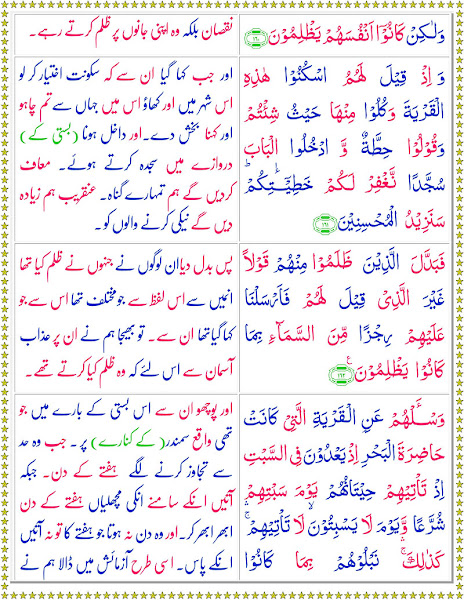 وَلٰكِنْ كَانُوْٓا اَنْفُسَهُمْ يَظْلِمُوْنَ ﴿١٦٠﴾
نقصان بلکہ وہ اپنی جانوں پر ظلم کرتے رہے۔
وَ اِذْ قِيْلَ لَهُمُ اسْكُنُوْا هٰذِهِ
الْقَرْيَةَ وَكُلُوْا مِنْهَا حَيْثُ شِئْتُمْ
وَقُوْلُوْا حِطَّةٌ وَّ ادْخُلُوا الْبَابَ
سُجَّدًا نَّغْفِرْ لَكُمْ خَطِيْٓـٰٔتِكُمْ ؕ
سَنَزِيْدُ الْمُحْسِنِيْنَ ﴿١٦١﴾
اور جب کہا گیا ان سے کہ سکونت اختیار کر لو
اس شہر میں اور کھاؤ اس میں جہاں سے تم چاہو
اور کہنا بخش دے۔اور داخل ہونا (بستی کے)
دروازے میں سجدہ کرتے ہوئے۔ معاف
کردیں گے ہم تمہارے گناہ۔ عنقریب ہم زیادہ
دیں گے نیکی کرنے والوں کو۔
فَبَدَّلَ الَّذِيْنَ ظَلَمُوْا مِنْهُمْ قَوْلًا
غَيْرَ الَّذِيْ قِيْلَ لَهُمْ فَاَرْسَلْنَا
عَلَيْهِمْ رِجْزًا مِّنَ السَّمَآءِ بِمَا
كَانُوْا يَظْلِمُوْنَ ﴿١٦٢﴾
پس بدل دیا ان لوگوں نے جنہوں نے ظلم کیا تھا
انہیں سے اس لفظ سے جو مختلف تھا اس سے جو
کہا گیا تھا ان سے۔ تو بھیجا ہم نے ان پر عذاب
آسمان سے اس لئے کہ وہ ظلم کیا کرتے تھے۔
وَسْـَٔلْهُمْ عَنِ الْقَرْيَةِ الَّتِيْ كَانَتْ
حَاضِرَةَ الْبَحْرِ اِذْ يَعْدُوْنَ فِي السَّبْتِ
اِذْ تَاْتِيْهِمْ حِيْتَانُهُمْ يَوْمَ سَبْتِهِمْ
شُرَّعًا وَّيَوْمَ لَا يَسْبِتُوْنَ لَا تَاْتِيْهِمْ ۛ
كَذٰلِكَ ۛ نَبْلُوْهُمْ بِمَا كَانُوْا
اور پوچھو ان سے اس بستی کے بارے میں جو
تھی واقع سمندر(کے کنارے) پر۔ جب وہ حد
سے تجاوز کرنے لگے ہفتے کے دن۔ جبکہ
آتیں انکے سامنے انکی مچھلیاں ہفتے کے دن
ابھر ابھر کر۔اور وہ دن نہ ہوتا جو ہفتے کا تو نہ آتیں
انکے پاس۔ اسی طرح آزمائش میں ڈالا ہم نے